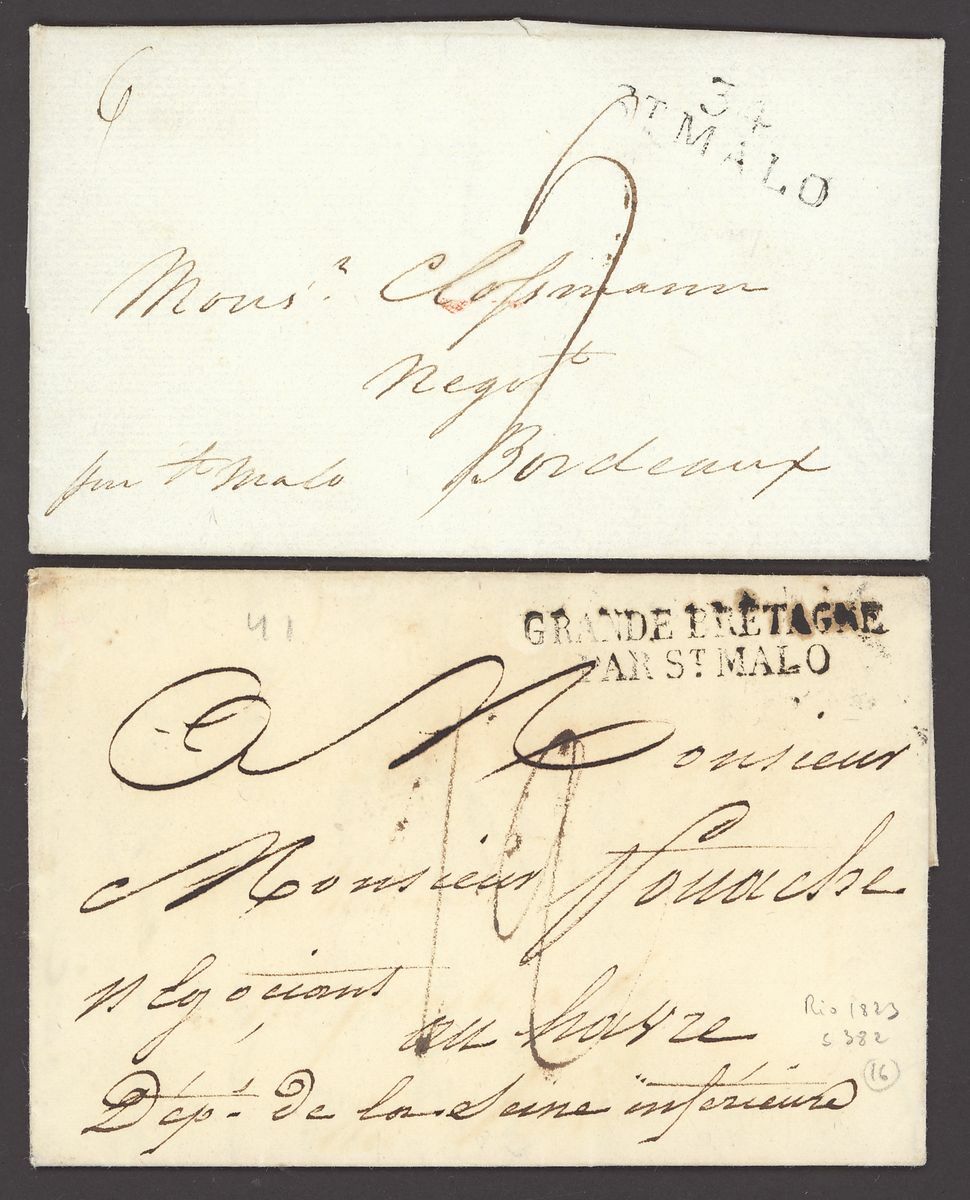 6
34
ST MALO
9
Monsr. Clossmann
Negott
Bordeaux
St Malo
41
GRANDE BRETAGNE
PAR ST MALO
A Monsieur
Monsieur Fouache
négociant
au havre
Dépt. de la Seine inférieure
Rio 1823
S 382
16